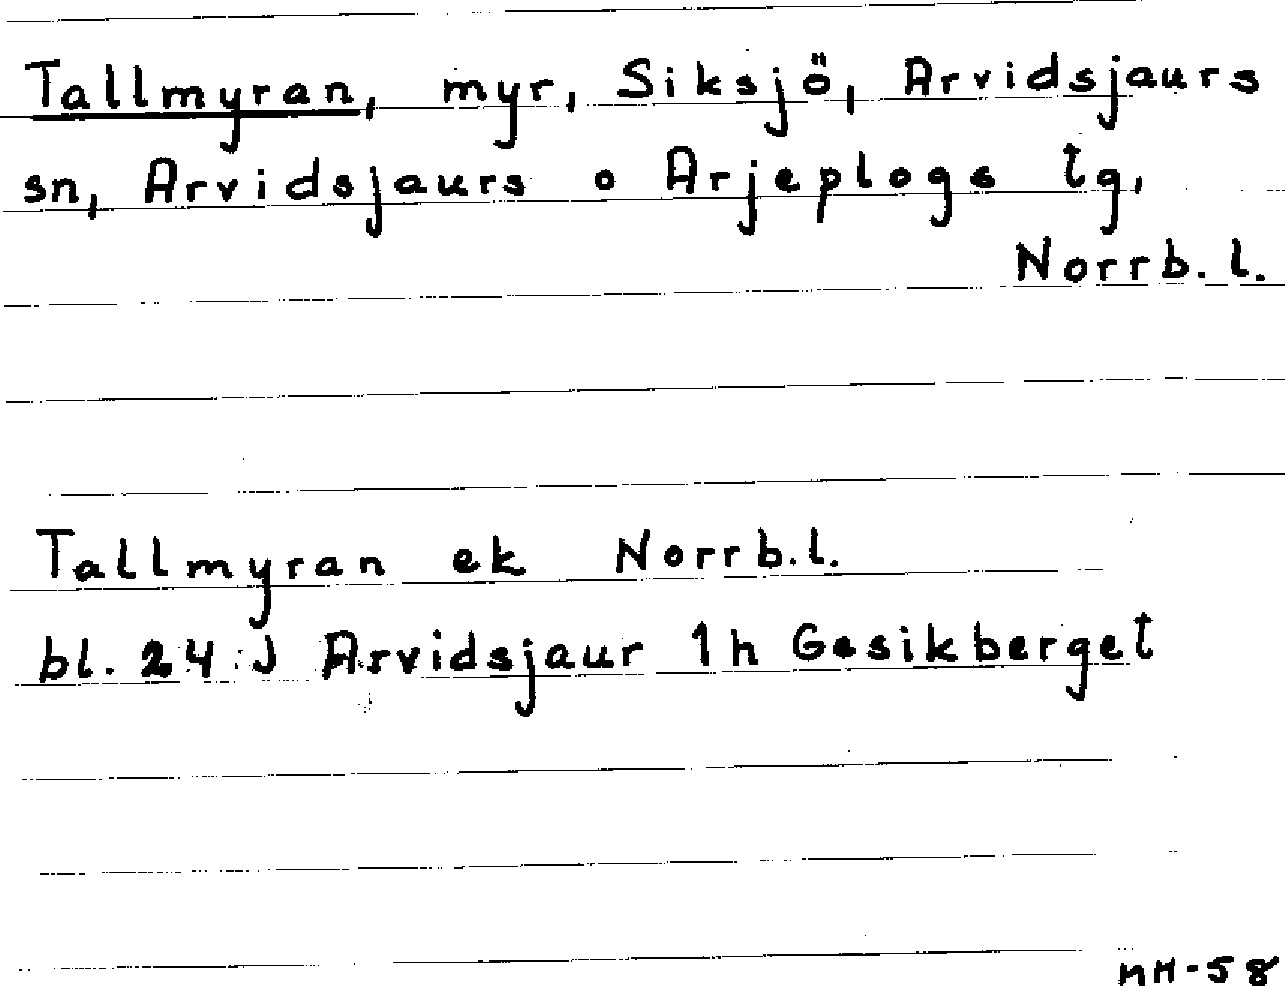 Tallmyran, myr, Siksjö, Arvidsjaurs
sn, Arvidsjaurs o Arjeplogs tg,
Norrb. l.
Tallmyran ek Norrb.l.
bl. 24 J Arvidsjaur 1h Gesikberget
MH-58